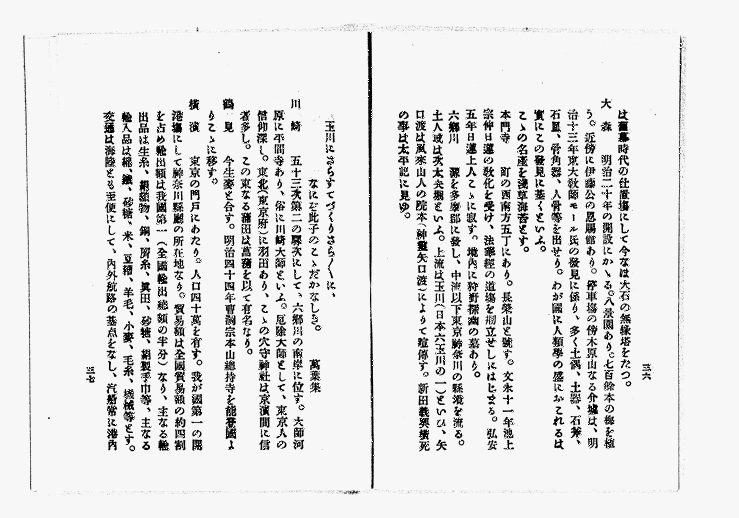 三六
は舊幕時代の仕置場にして今なほ大石の無縁塔をたつ。
大森　明治二十年の開設にかゝる。八景園あり。七百餘本の梅を植
う。近傍に伊藤公の恩賜館あり。停車場の傍木原山なる介墟は、明
治十三年東大敎師モールス氏の發見に係り、多く土偶、土器、石斧、
石皿、骨角器、人骨等を出せり。わが國に人類學の盛におこれるは
實にこの發見に基くといふ。
こゝの名產を淺草海苔とす。
本門寺　町の西南方五丁にあり。長榮山と號す。文永十一年池上
宗仲日蓮の敎化を受け、法華經の道場を創立せしにはじまる。弘安
五年日蓮上人こゝに寂す。境内に狩野探幽の墓あり。
六鄕川　源を多摩郡に發し、中流以下東京神奈川の縣境を流る。
土人或は次太夫堀といふ。上流は玉川(日本六玉川の一)といひ、矢
口渡は風來山人の院本(神靈矢口渡)によりて喧傳す。新田義興橫死
の事は太平記に見ゆ。
玉川にさらすてづくりさら〳〵に、
なにぞ此子のこゝだかなしき。　萬葉集
川崎　五十三次第二の驛次にして、六鄕川の南岸に位す。大師河
原に平間寺あり、俗に川崎大師といふ。厄除大師として、東京人の
信仰深し。東北(東京府)に羽田あり、こゝの穴守神社は京濱間に信
者多し。この東なる蒲田は菖蒲を以て有名なり。
鶴見　今生麥と合す。明治四十四年曹洞宗本山總持寺を能登國よ
りこゝに移す。
橫濱　東京の門戶にあたり。人口四十萬を有す。我が國第一の開
港場にして神奈川縣廳の所在地なり。貿易額は全國貿易額の約四割
を占め輸出額は我國第一(全國輸出總額の半分)なり、主なる輸
出品は生糸、絹織物、銅、屑糸、眞田、砂糖、絹製手巾等、主なる
輸入品は綿、鐵、砂糖、米、豆糟、羊毛、小麥、毛糸、機械等とす。
交通は海陸とも至便にして、內外航路の基点をなし、汽船常に港內
三七